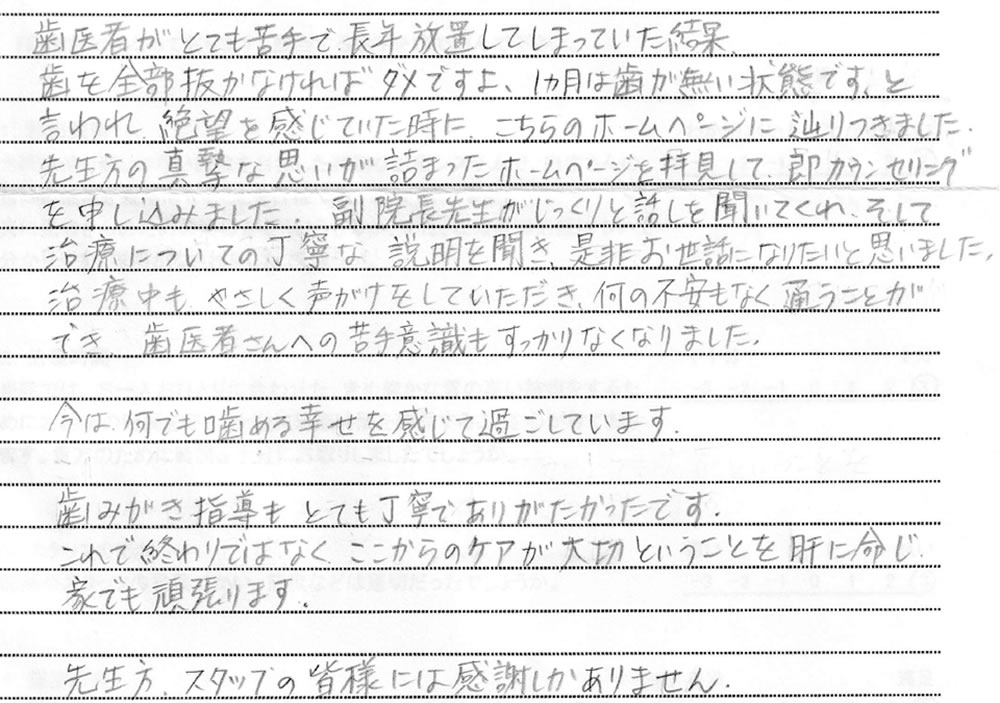 歯医者がとても苦手で、長年放置してしまっていた結果、
歯を全部抜かなければダメですよ、1ヵ月は歯が無い状態です、と
言われ、絶望を感じていた時に、こちらのホームページに辿りつきました。
先生方の真摯な思いが詰まったホームページを拝見して、即カウンセリング
を申し込みました。副院長先生がじっくりと話しを聞いてくれ、そして
治療についての丁寧な説明を聞き、是非お世話になりたいと思いました。
治療中も、やさしく声がけをしていただき、何の不安もなく通うことが
でき、歯医者さんへの苦手意識もすっかりなくなりました。
今は何でも噛める幸せを感じて過ごしています。
歯みがき指導もとても丁寧でありがたかったです。
これで終わりではなく、ここからのケアが大切ということを肝に命じ
家でも頑張ります。
先生方、スタッフの皆様には感謝しかありません。